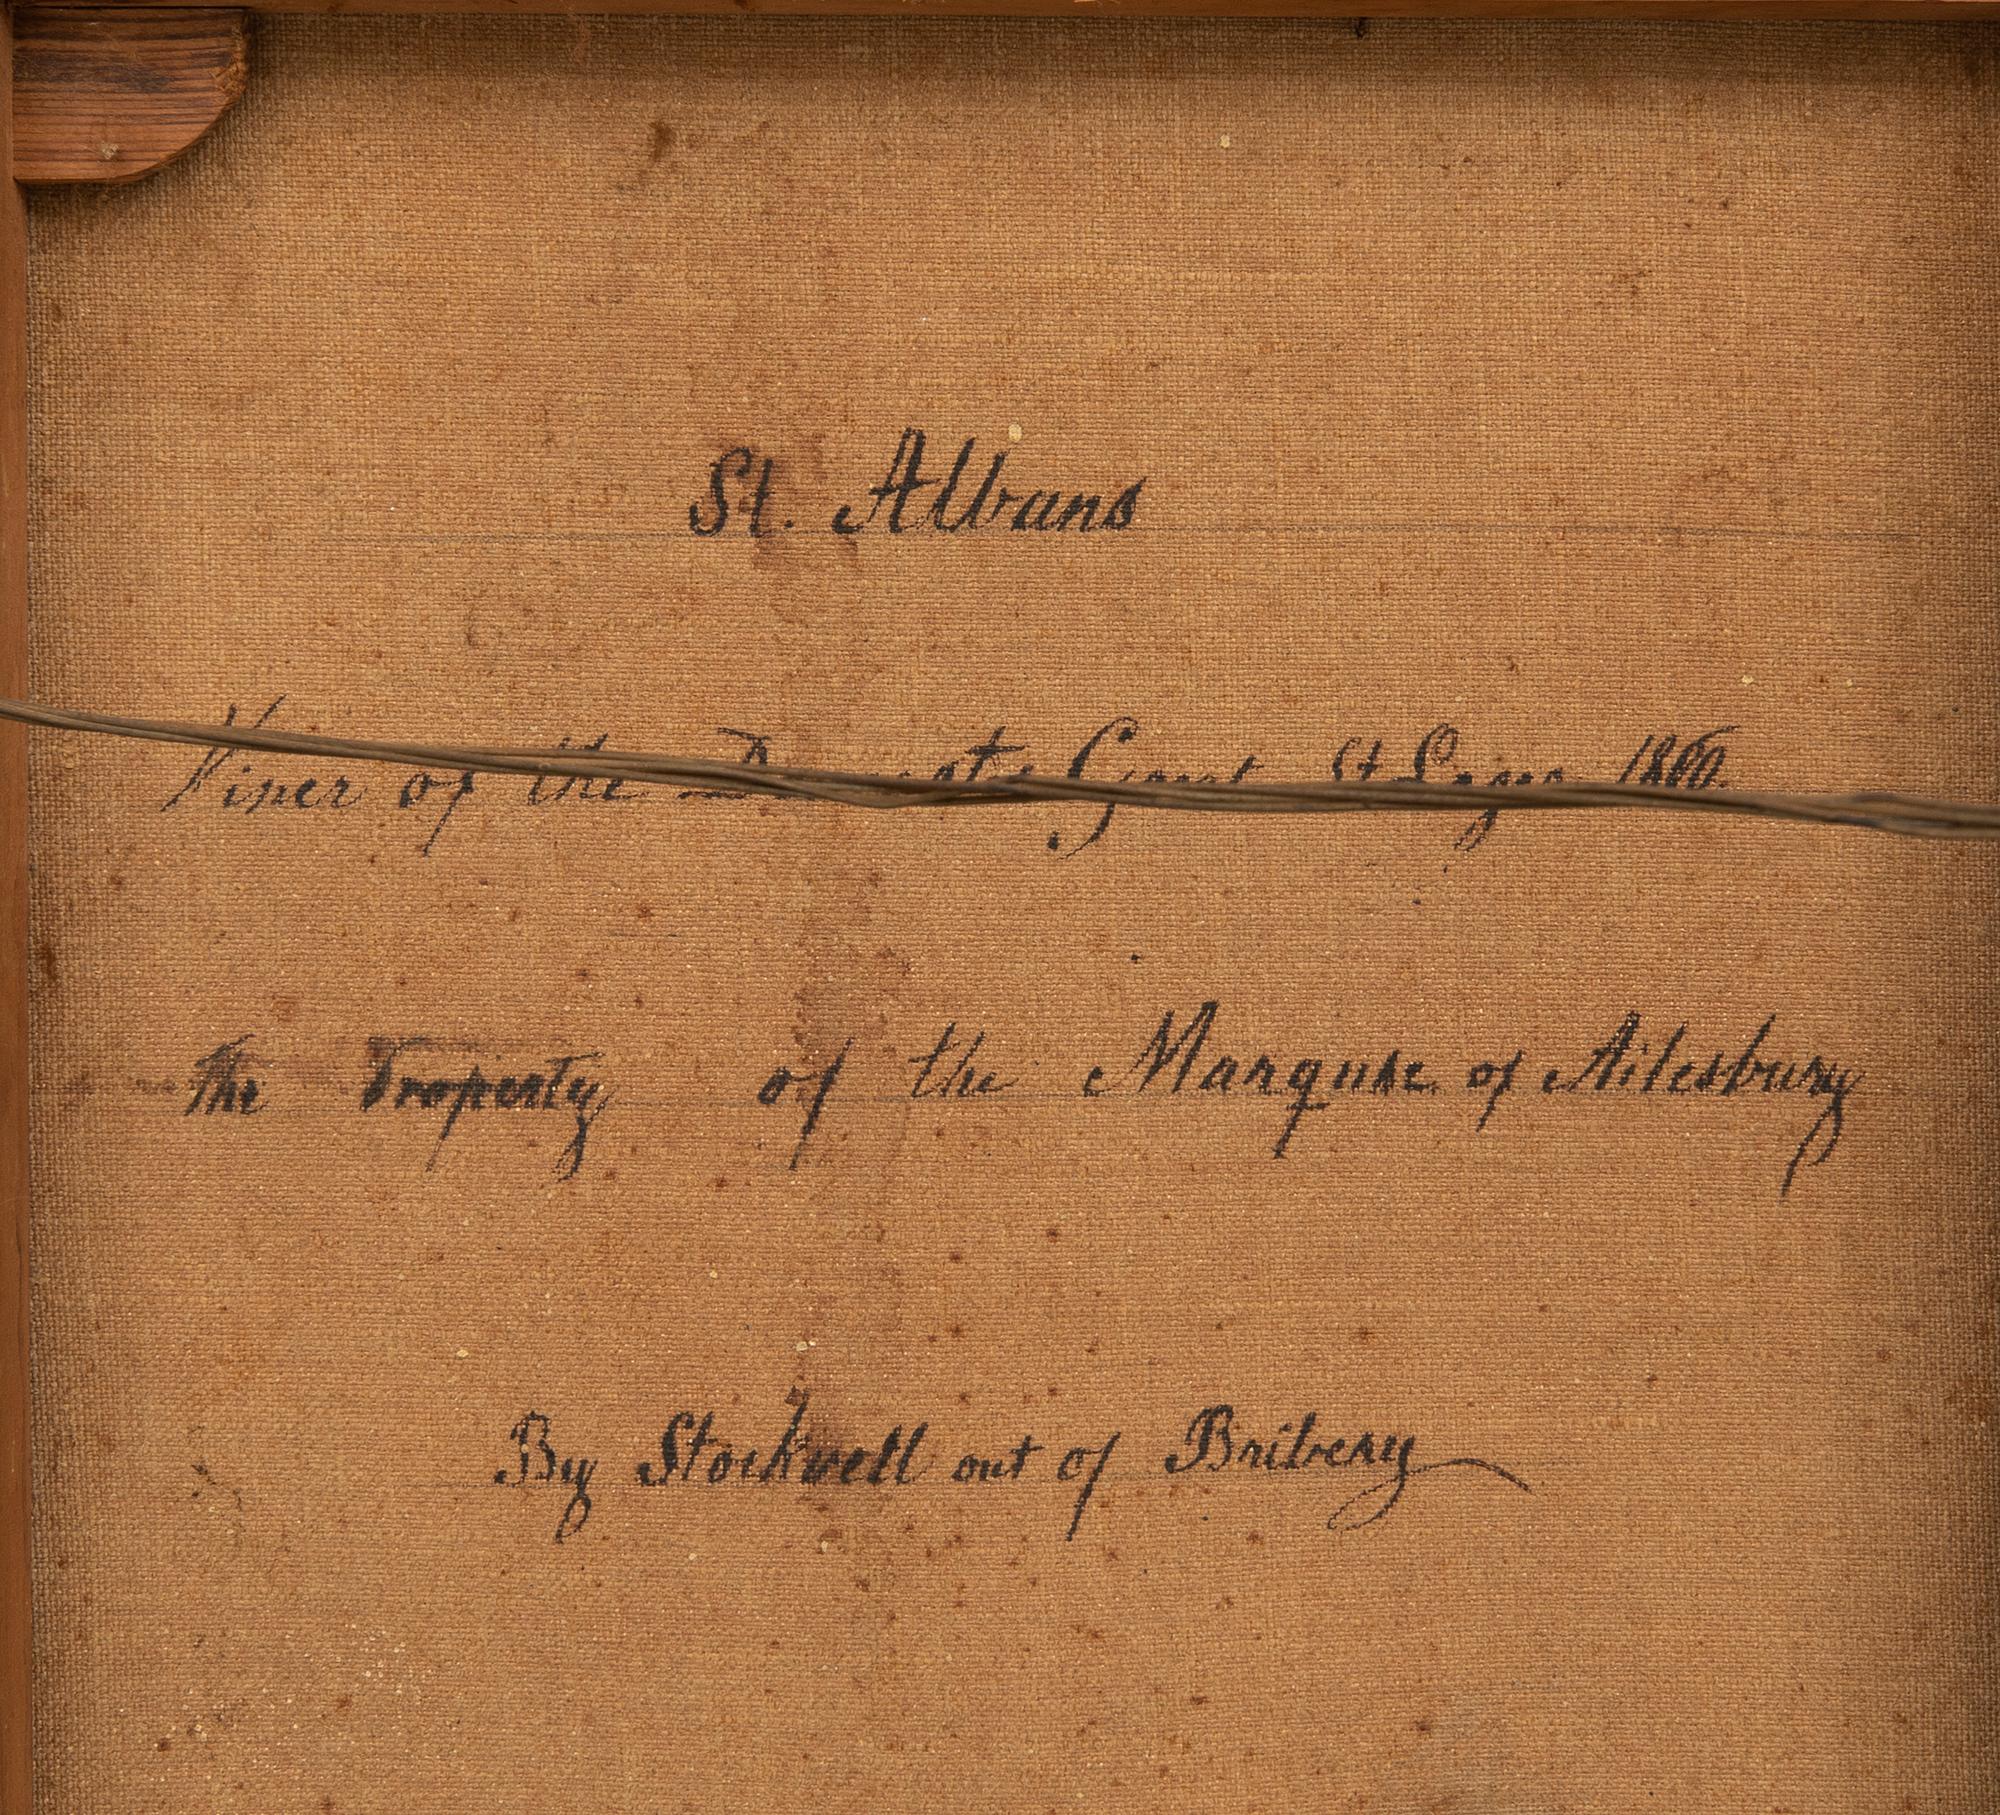 St. Albans
Viner of the Great St Leger 1860.
The Property of the Marquse of Ailesbury
By Stockwell out of Bribery